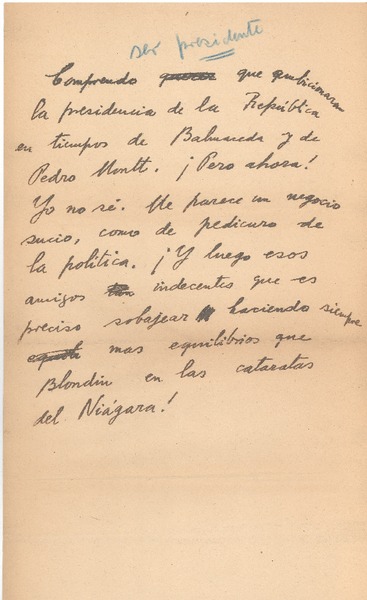 ser presidente
Comprendo que ambicionaran
la presidencia de la República
en tiempos de Balmaceda y de
Pedro Montt. ¡Pero ahora!
Yo no sé. Me parece un negocio
sucio, como de pedicuro de
la política. ¡Y luego esos
amigos indecentes que es
preciso sobajear haciendo siempre
mas equilibrios que
Blondin en las cataratas
del Niágara!